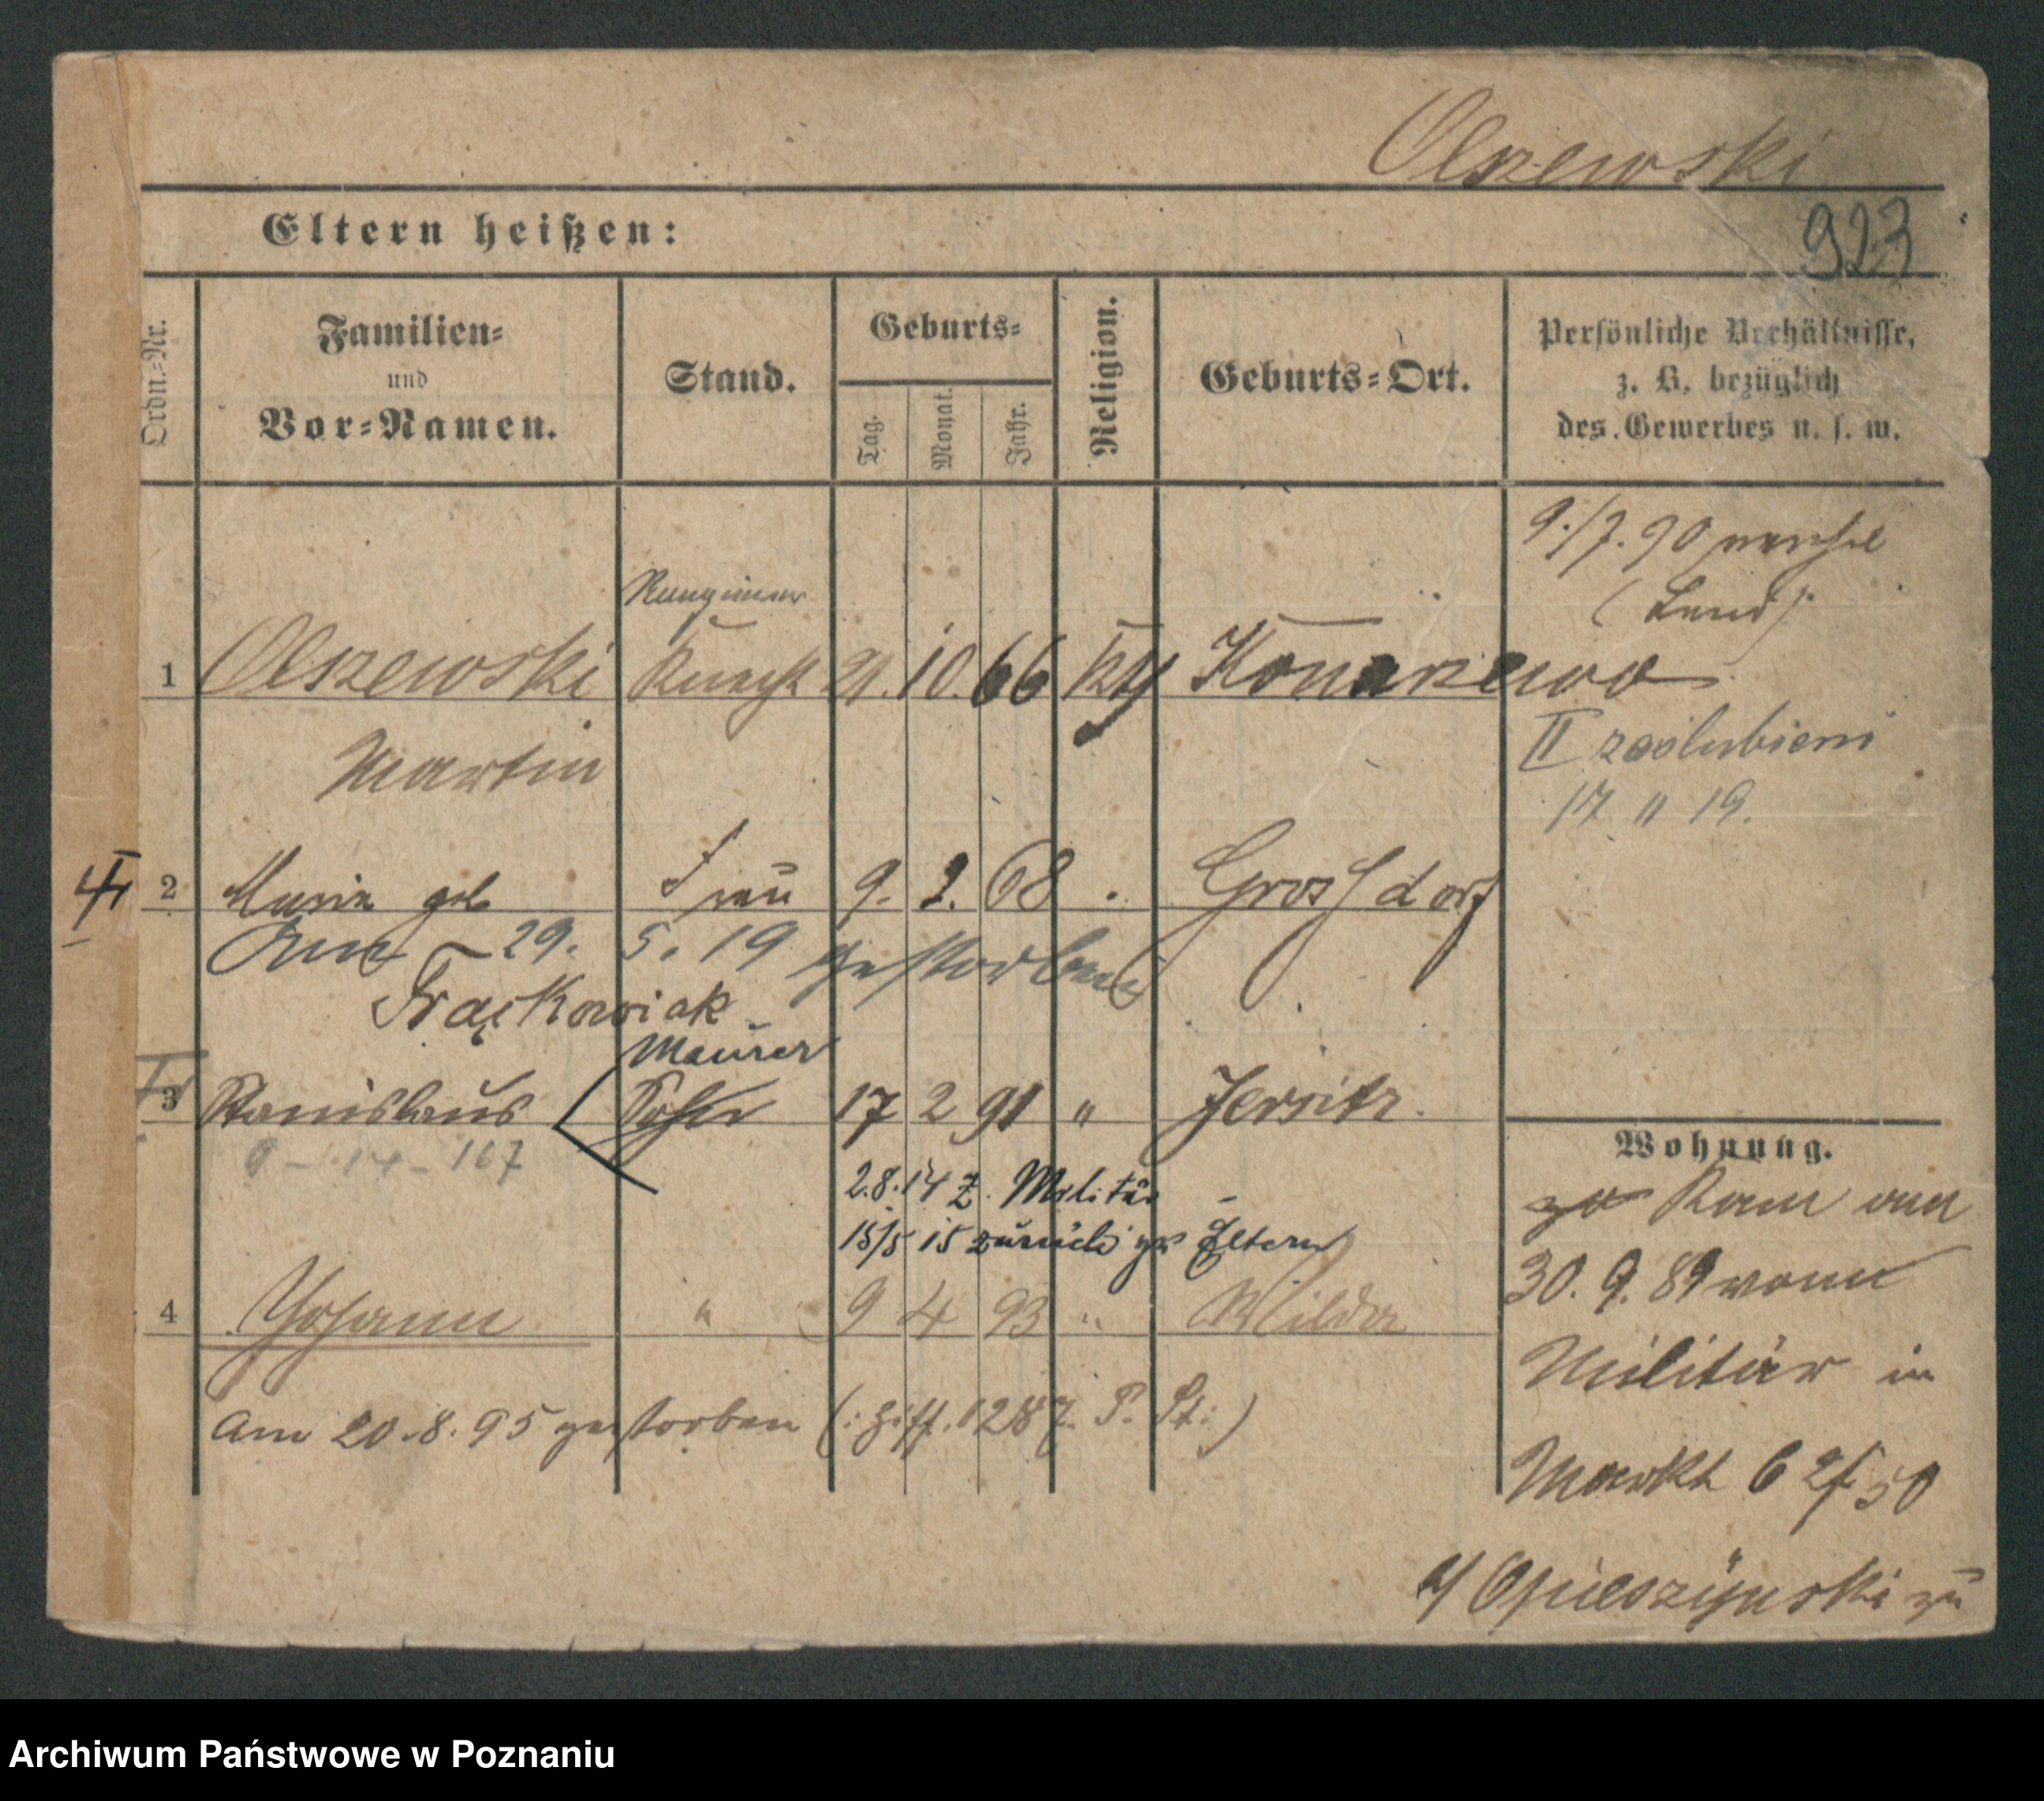 Olszewski
923
Eltern heißen:
Ordn.-Nr.
Familien-
und
Vor-Namen.
Stand.
Geburts-
Tag.
Monat.
Jahr.
Religion.
Geburts-Ort.
Persönliche Verhältnisse,
z. B. bezüglich
des Gewerbes u. s. w.
9./7. 90
(Land)
1 Olszewski Knecht 21. 10. 66 kth Konarzewo
Martin
II zaślubieni
17 11 19.
2 Maria geb Frau 9. 2. 68 . Grossdorf
Am 29. 5. 19 gestorben
Frąckowiak
Maurer
3 Stanislaus Sohn 17 2 91 " Jersitz.
9 - 14 - 167
2.8.14 z. Militär -
15/5 15 zurück zu Eltern
4 Johann " 9 4 93 " Wilda
Am 20.8.95 gestorben (: 1287. P. St:)
Wohnung.
zu Kam am
30. 9. 89 vom
Militär in
Markt 6
b/ Opieszynski zu
Archiwum Państwowe w Poznaniu